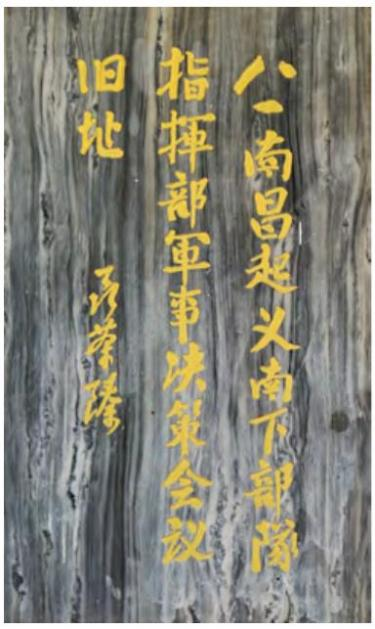 八一南昌起义南下部隊
指揮部軍事决策会议
旧址
聂荣臻